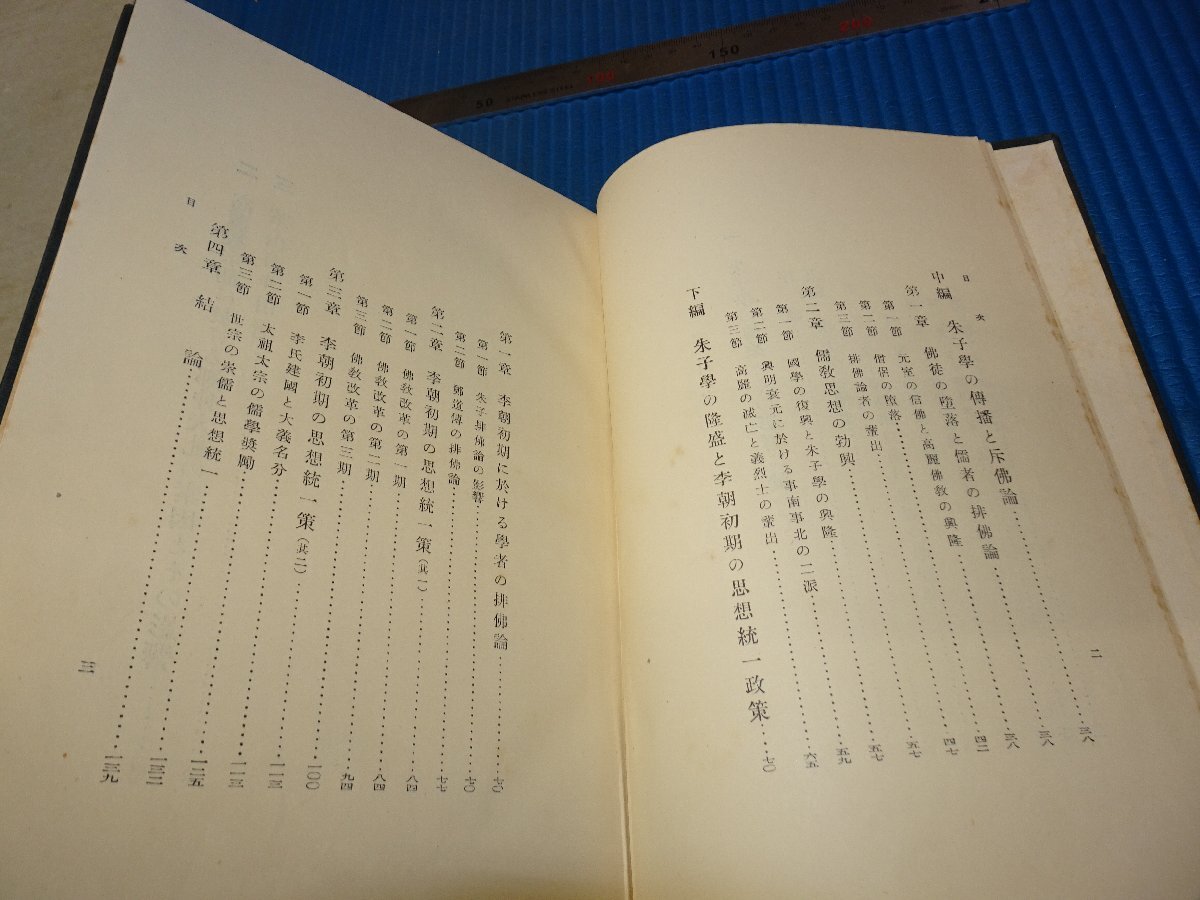 目次
二
中編 朱子學の傳播と斥佛論……三八
第一章 佛徒の墮落と儒者の排佛論……三八
第一節 元室の信佛と高麗佛教の興隆……三八
第二節 僧侶の墮落……四二
第三節 排佛論者の輩出……四七
第二章 儒教思想の勃興……五七
第一節 國學の復興と朱子學の興隆……五七
第二節 興明衰元に於ける事南事北の二派……五九
第三節 高麗の滅亡と義烈士の輩出……六五
下編 朱子學の隆盛と李朝初期の思想統一政策……七〇
第一章 李朝初期に於ける學者の排佛論……七〇
第一節 朱子排佛論の影響……七〇
第二節 鄭道傳の排佛論……七七
第二章 李朝初期の思想統一策(其一)……八四
第一節 佛教改革の第一期……八四
第二節 佛教改革の第二期……九四
第三節 佛教改革の第三期……一〇〇
第三章 李朝初期の思想統一策(其二)……一一三
第一節 李氏建國と大義名分……一一三
第二節 太祖太宗の儒學奬勵……一二五
第三節 世宗の崇儒と思想統一……一三二
第四章 結論……一三九
目次
三
50 100 150 200